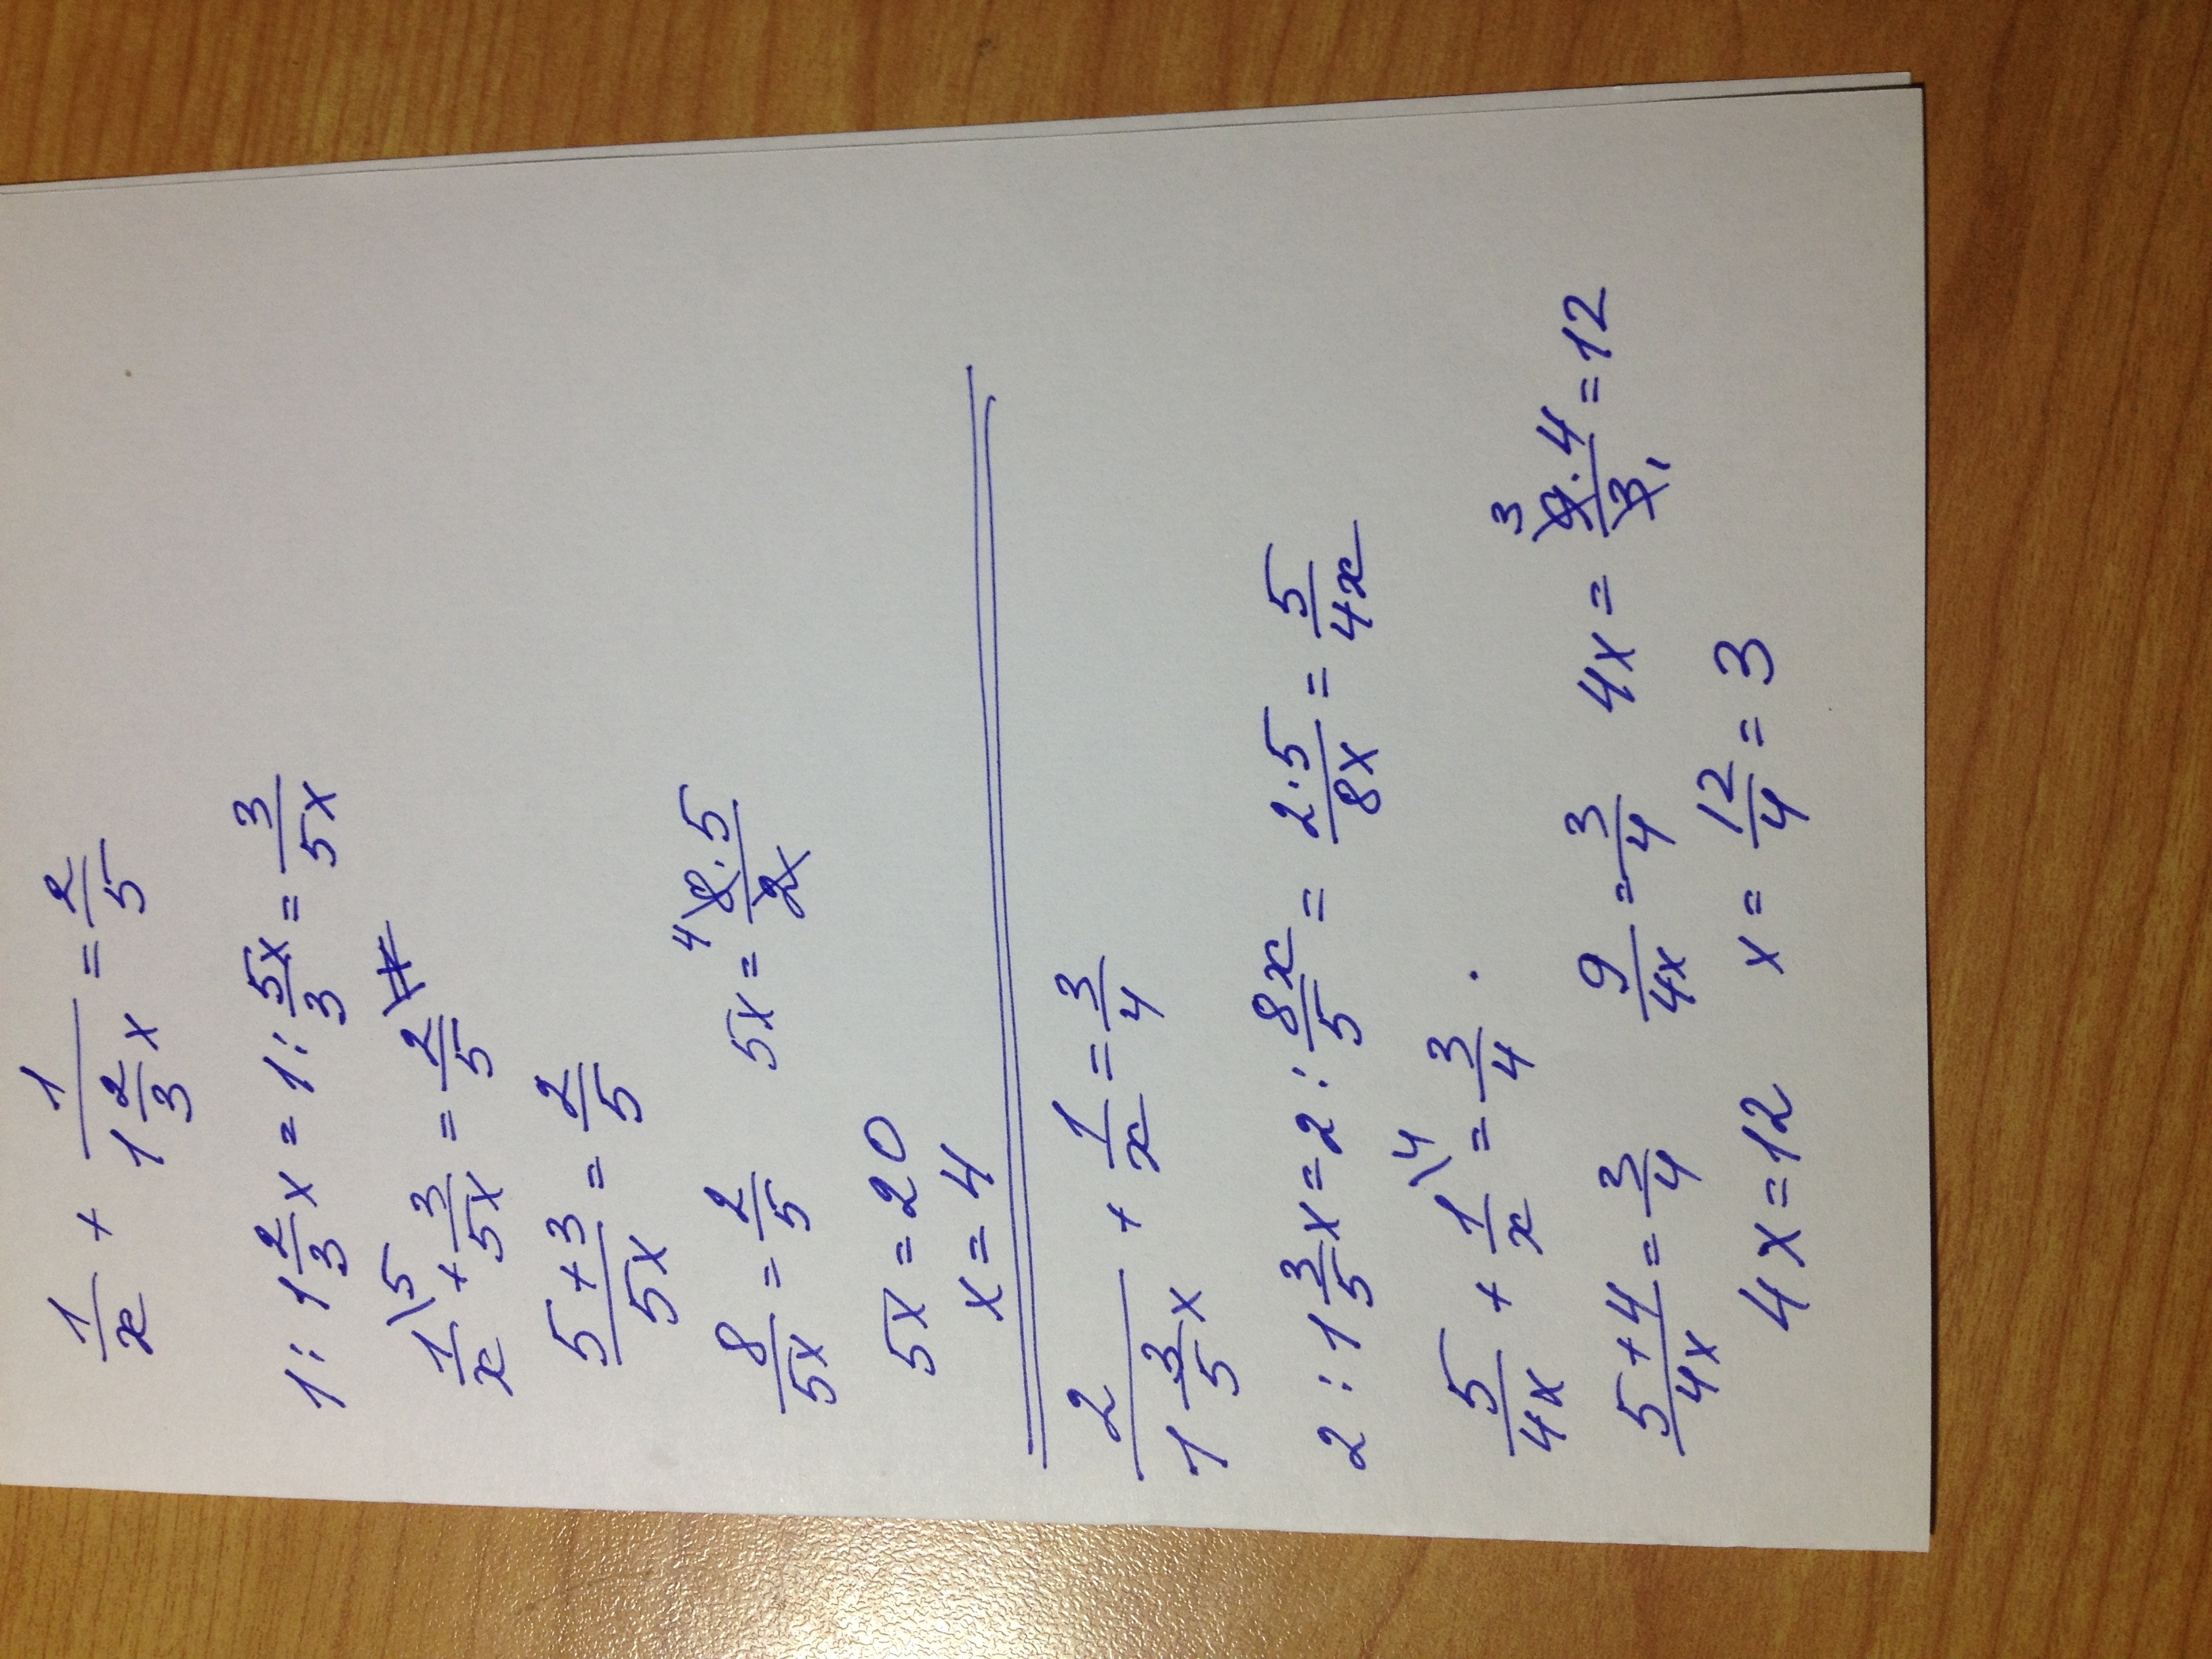 1/x + 1/(1 2/3 x) = 2/5
1 : 1 2/3 x = 1 : 5x/3 = 3/5x
1/x \5 + 3/5x = 2/5
(5+3)/5x = 2/5
8/5x = 2/5   5x = 4 8·5/2
5x = 20
x = 4
2/(1 3/5 x) + 1/x = 3/4
2 : 1 3/5 x = 2 : 8x/5 = 2·5/8x = 5/4x
5/4x + 1/x \4 = 3/4 .
(5+4)/4x = 3/4   9/4x = 3/4   4x = 3 9·4/3 1 = 12
4x = 12   x = 12/4 = 3